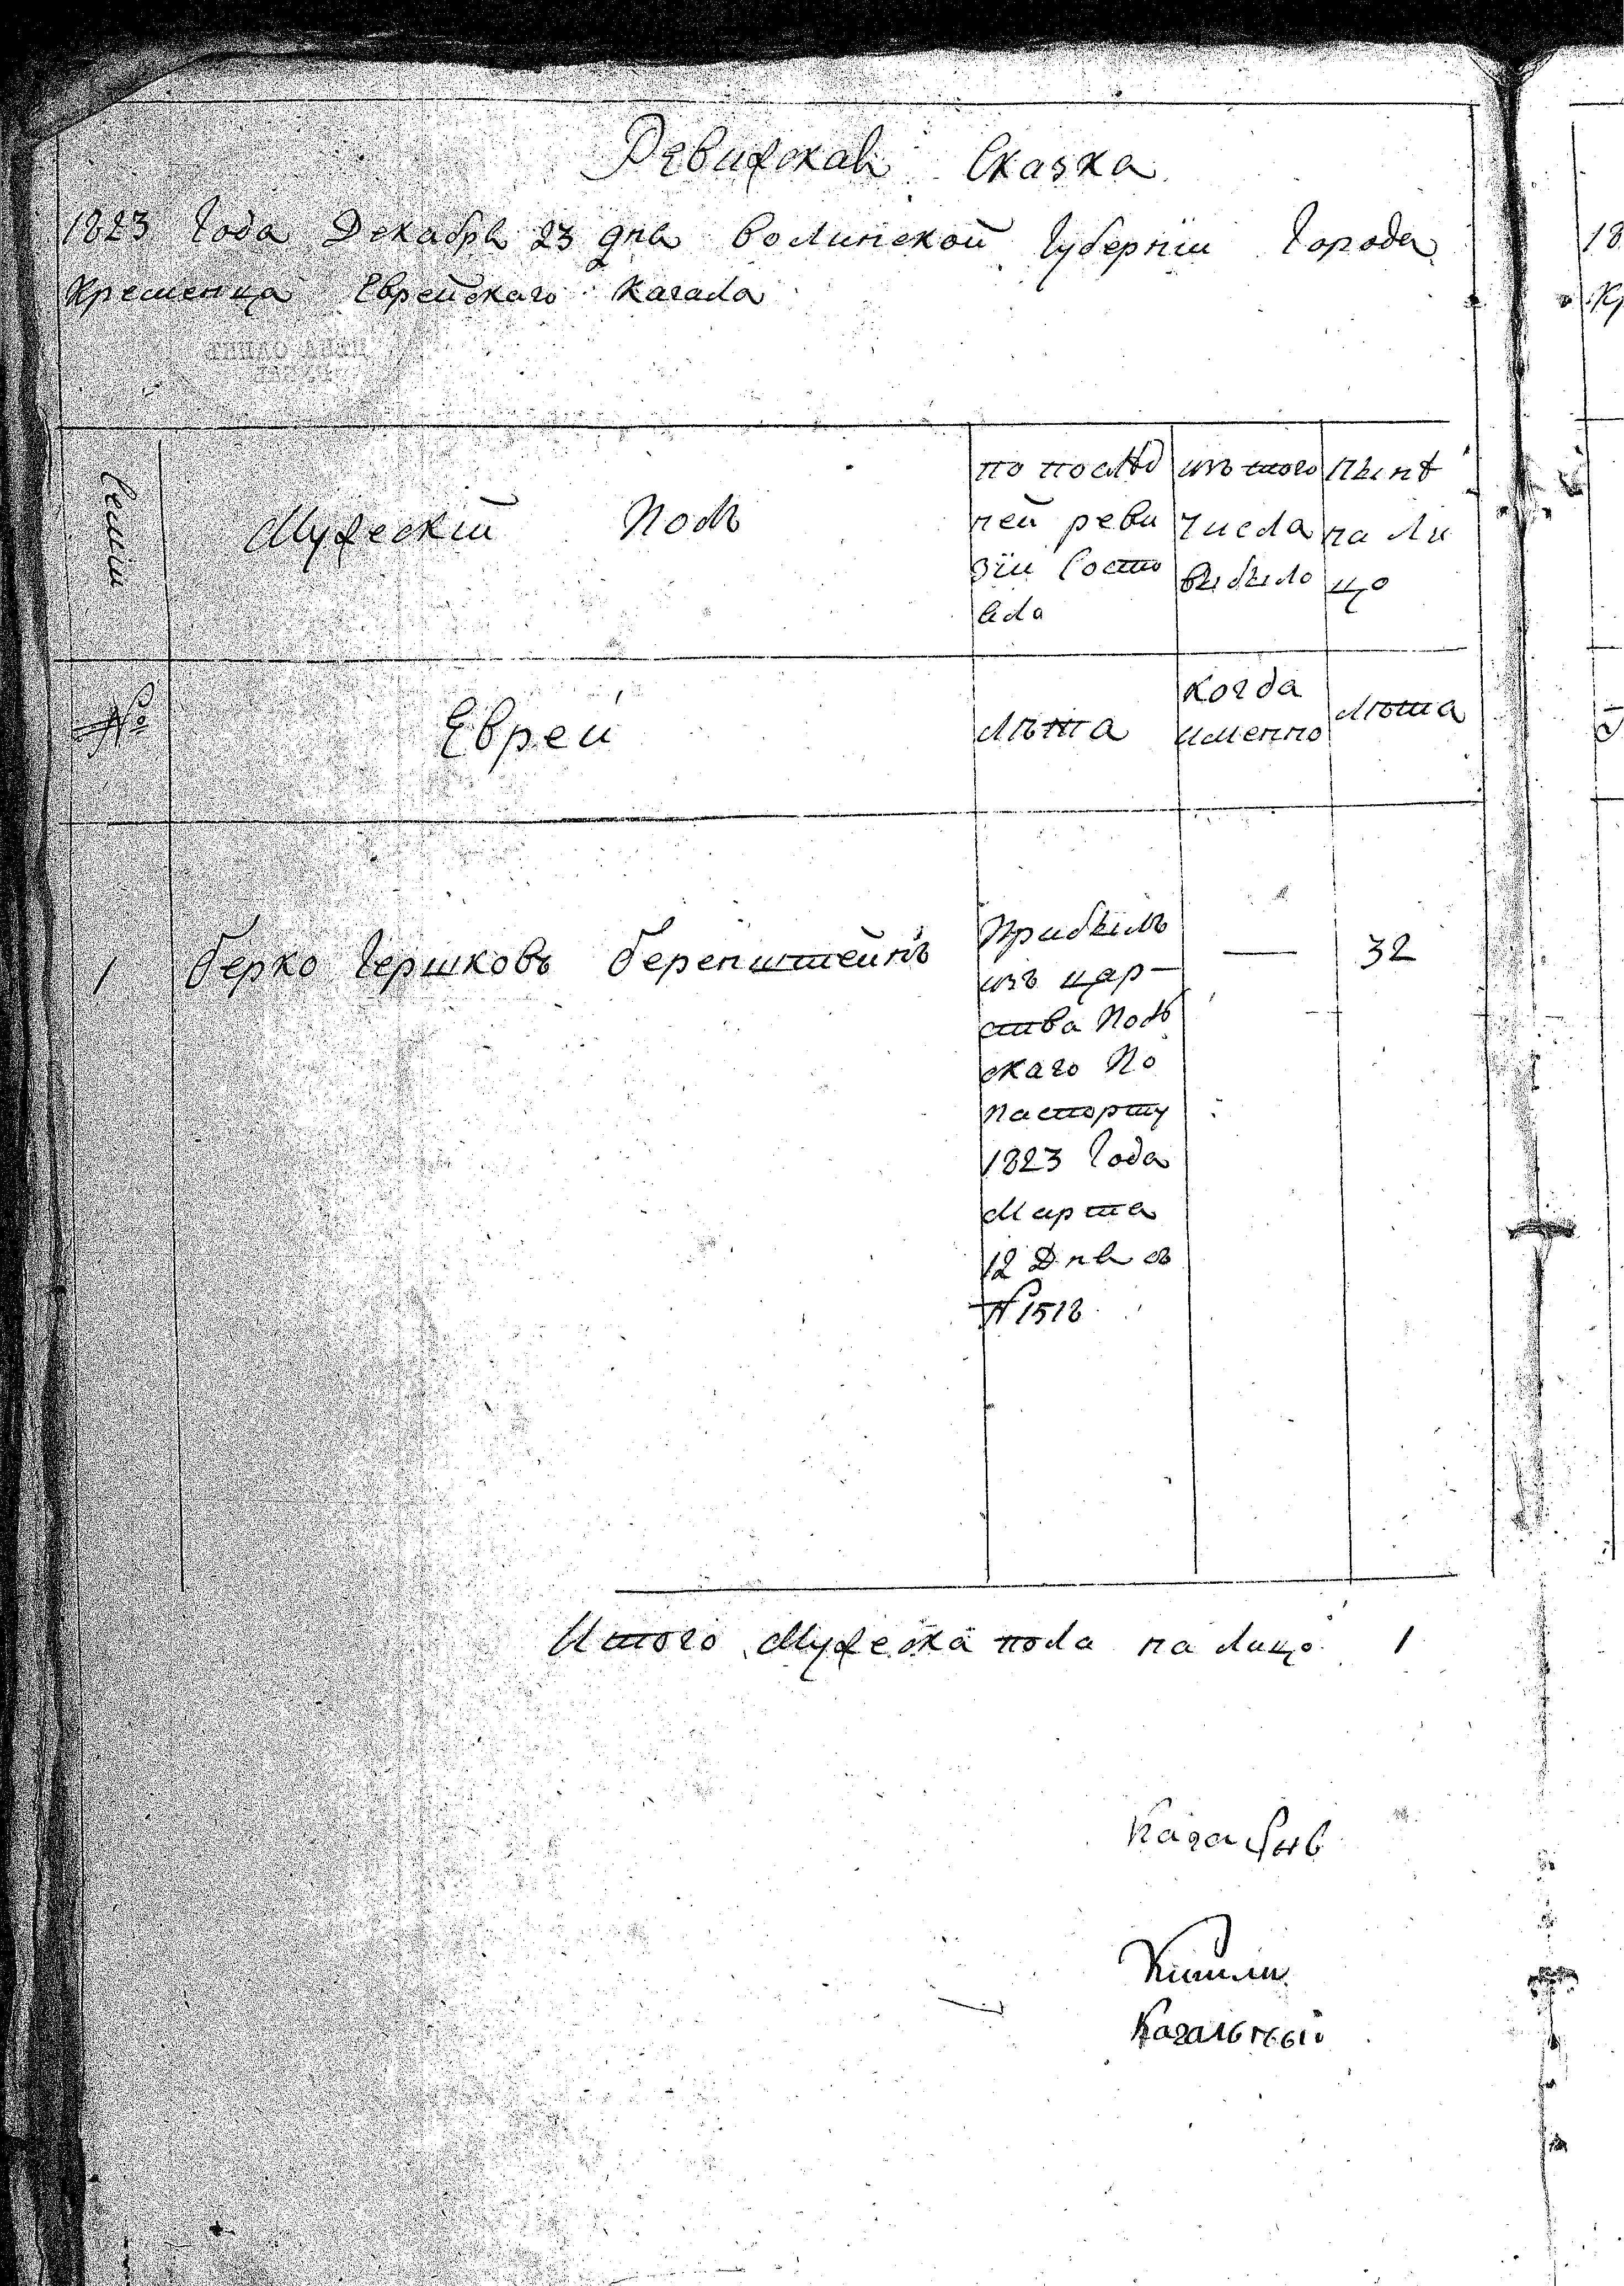 Ревизская Сказка
1823 Года Декабря 23 дня Волинской Губернїи Города
Кременца Еврейскаго Кагала
Семьи
Мужескїй Полъ
по послѣд
ней реви
зїи Состо
яла
изъ того
числа
вибыло
Нынѣ
на ли
цо
№
Евреи
лѣта
Когда
именно
лѣта
1 Берко Гершковъ Беренштейнъ
Прибылъ
изъ цар-
ства Поль
скаго По
паспорту
1823 Года
Марта
12 Дня
№ 1518
— 32
Итого Мужеска пола на лицо 1
Кагальный